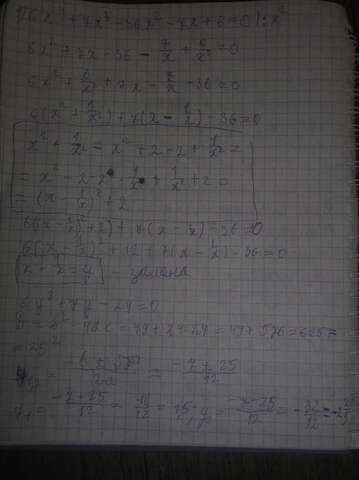 6x⁴ + 7x³ - 36x² - 7x + 6 = 0 | : x²
6x² + 7x - 36 - 7/x + 6/x² = 0
6x² + 6/x² + 7x - 7/x - 36 = 0
6(x² + 1/x²) + 7(x - 1/x) - 36 = 0
x² + 1/x² = x² + 2 - 2 + 1/x² =
= x² - 2 · x · 1/x + 1/x² + 2
= (x - 1/x)² + 2
6((x - 1/x)² + 2) + 7(x - 1/x) - 36 = 0
6(x - 1/x)² + 12 + 7(x - 1/x) - 36 = 0
x - 1/x = y - заміна
6y² + 7y - 24 = 0
D = b² - 4ac = 49 + 24 · 24 = 49 + 576 = 625 =
= 25²
y₁,₂ = (-b ± √D)/2a = (-7 ± 25)/12
y₁ = (-7 + 25)/12 = 18/12 = 1,5; y₂ = (-7 - 25)/12 = -32/12 = -2